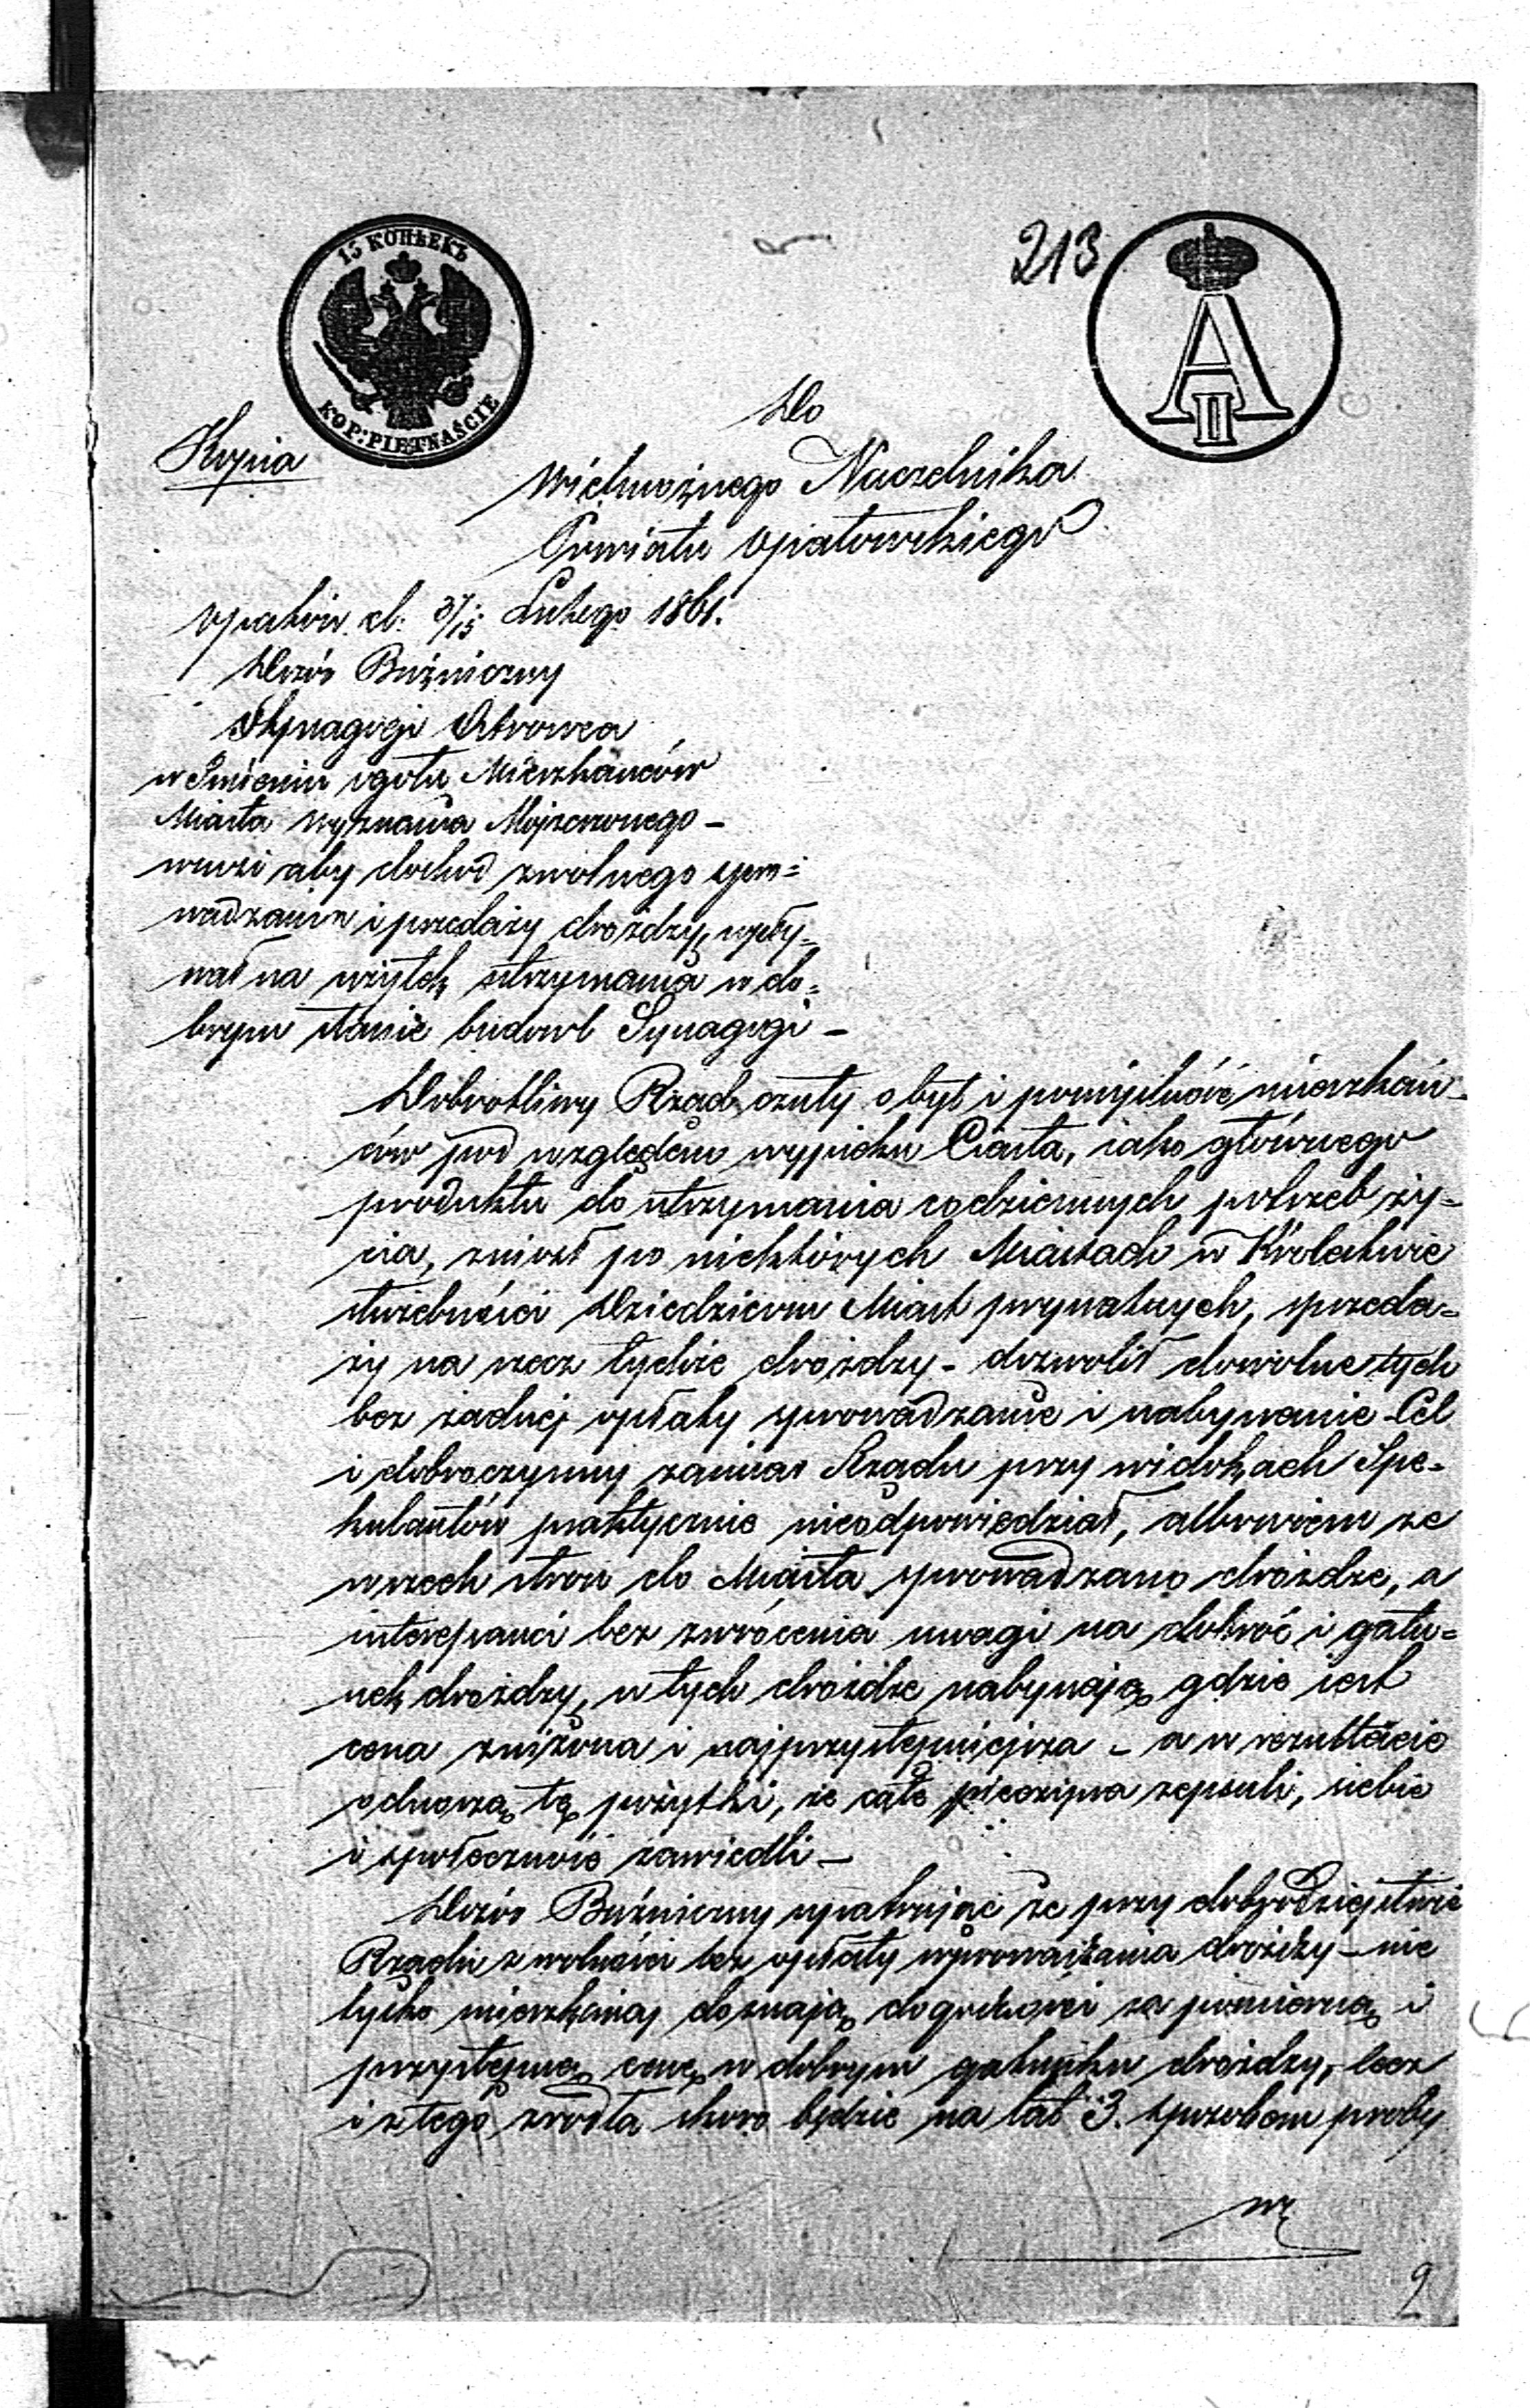 15 КОПѢЕКЪ
KOP: PIĘTNAŚCIE
213
A
II
Do
Kopia
Wielmożnego Naczelnika
Powiatu Opatowskiego
Opatów d. 3/15 Lutego 1861.
Dozór Bóżniczny
Synagogi Ostrowca
w Imieniu ogółu Mieszkańców
Miasta Wyznania Mojżeszowego –
wnosi aby dochód z wolnego spro=
wadzania i przedaży drożdży, wpły=
wał na użytek utrzymania w do=
brym stanie budowl Synagogi –
Dobrotliwy Rząd czuły o byt i pomyślność mieszkań=
ców pod względem wypieku Ciasta, iako głównego
produktu do utrzymania codziennych potrzeb ży=
cia, zniosł po niektórych Miastach w Królestwie
służebności Dziedzicom Miast prywatnych, sprzeda=
ży na rzecz tychże drożdży – dozwolił dowolne tych
bez żadnej opłaty sprowadzanie i nabywanie – Cel
i dobroczynny zamiar Rządu przy widokach Spe=
kulantów praktycznie nieodpowiedział, albowiem ze
wszech stron do Miasta sprowadzano drożdże, a
interessanci bez zwrócenia uwagi na dobroć i gatu=
nek drożdży, u tych drożdże nabywają gdzie iest
cena zniżona i najprzystępniejsza – a w rezultacie
odnoszą tę pożytki, że całe pieczywa zepsuli, siebie
i społeczność zawiedli –
Dozór Bóżniczny upatrując że przy dobrodziejstwie
Rządu z wolności bez opłaty wprowadzania drożdży – nie
tylko mieszkańcy doznają dogodności za pomierną i
przystępną cenę w dobrym gatunku drożdży, lecz
i z tego zrodła skoro będzie na lat 3. sposobem proby
9